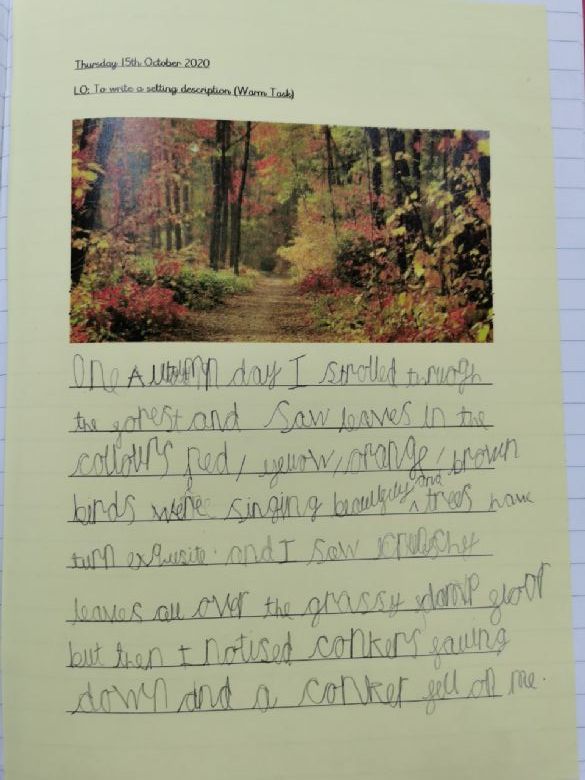 Thursday 15th October 2020
LO: To write a setting description (Warm Task)
One Autumn day I strolled through
the forest and saw leaves in the
colours red, yellow, orange, brown
birds were singing beautifully and trees have
turn exquisite. and I saw crunchy
leaves all over the grassy damp floor
but then I notised conkers falling
down and a conker fell on me.